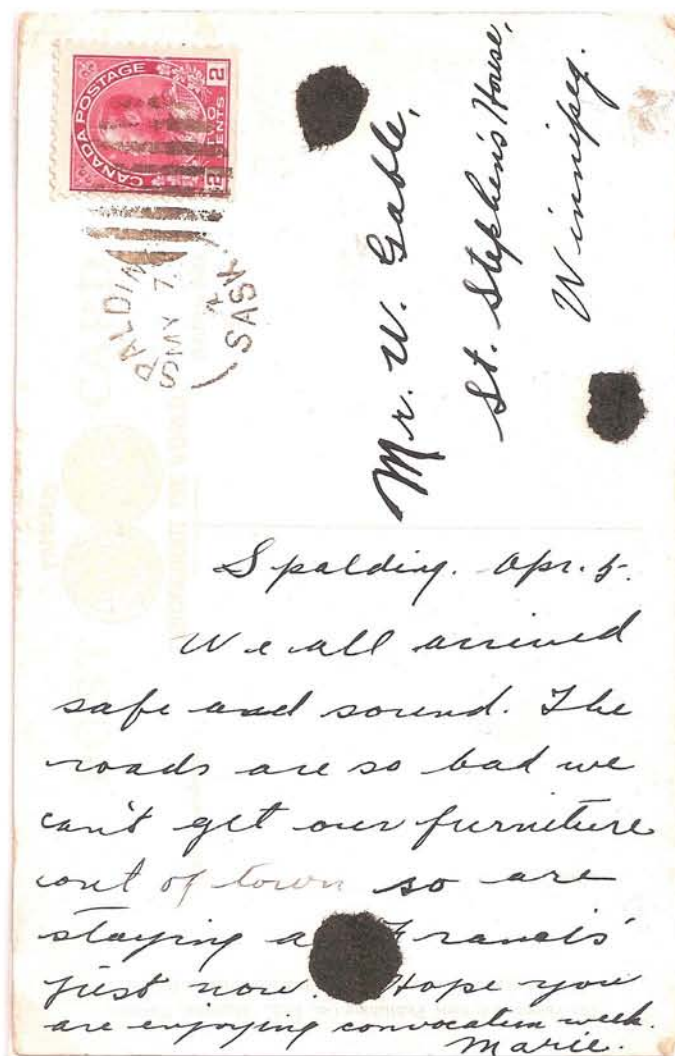 CANADA POSTAGE
2 TWO CENTS 2
SPALDIN
MY 7
SASK.
Mr. W. Gable,
St. Stephen's House,
Winnipeg.
Spalding. Apr. 5.
We all arrived
safe and sound. The
roads are so bad we
can't get our furniture
out of town so are
staying a Francis'
just now. Hope you
are enjoying convocation week.
Marie.